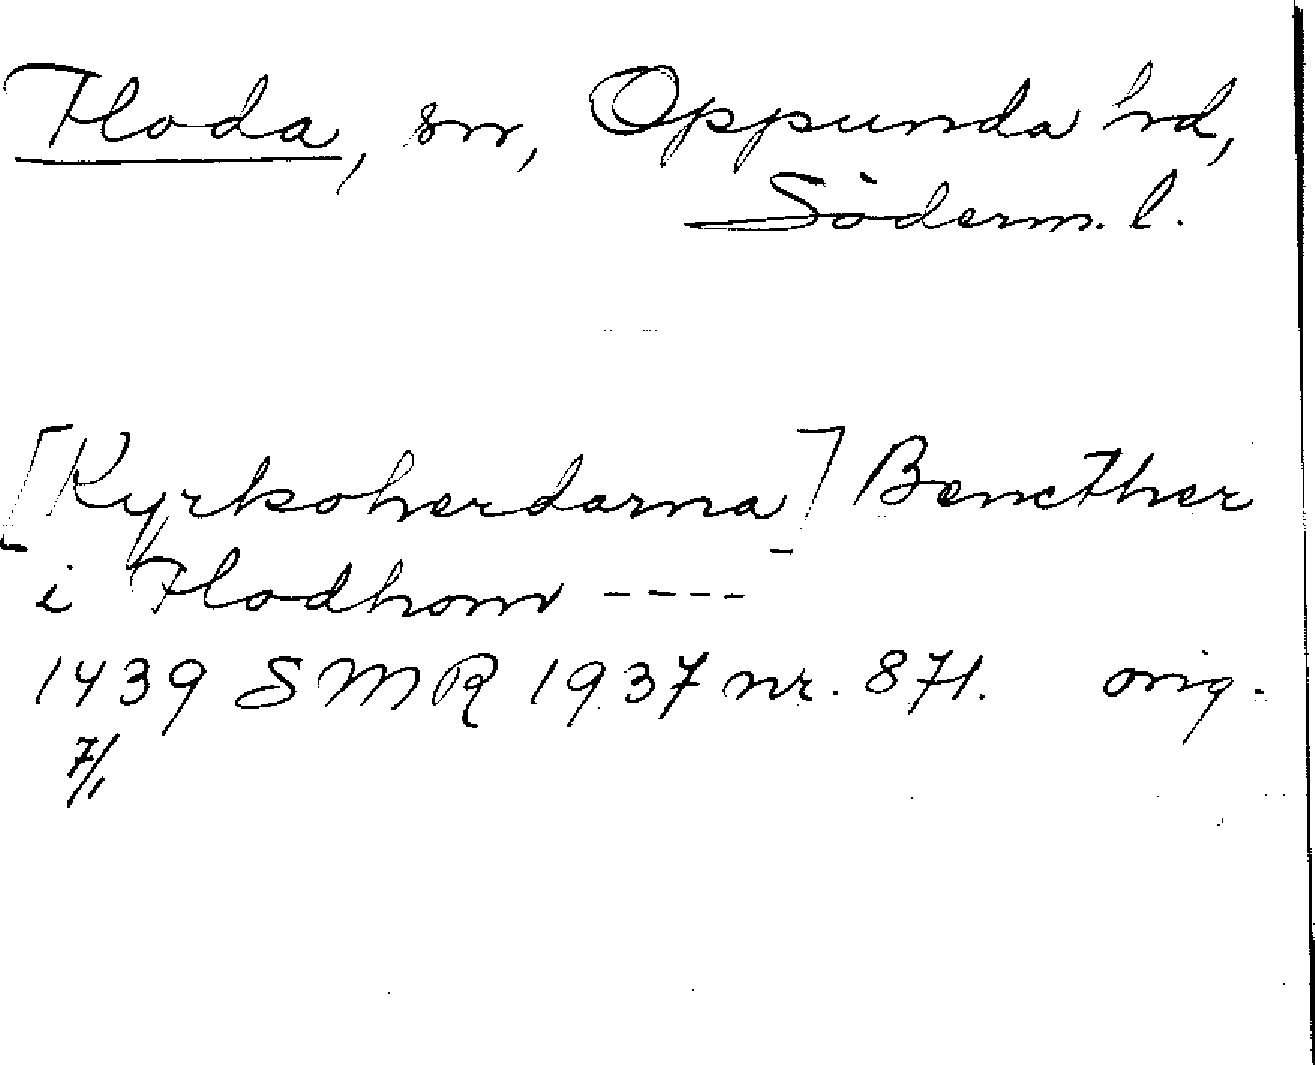 Floda, sn, Oppunda hd,
Söderm. l.
[Kyrkoherdarna] Bencther
i Flodhom ----
1439 SMR 1937 nr. 871. orig.
7/1